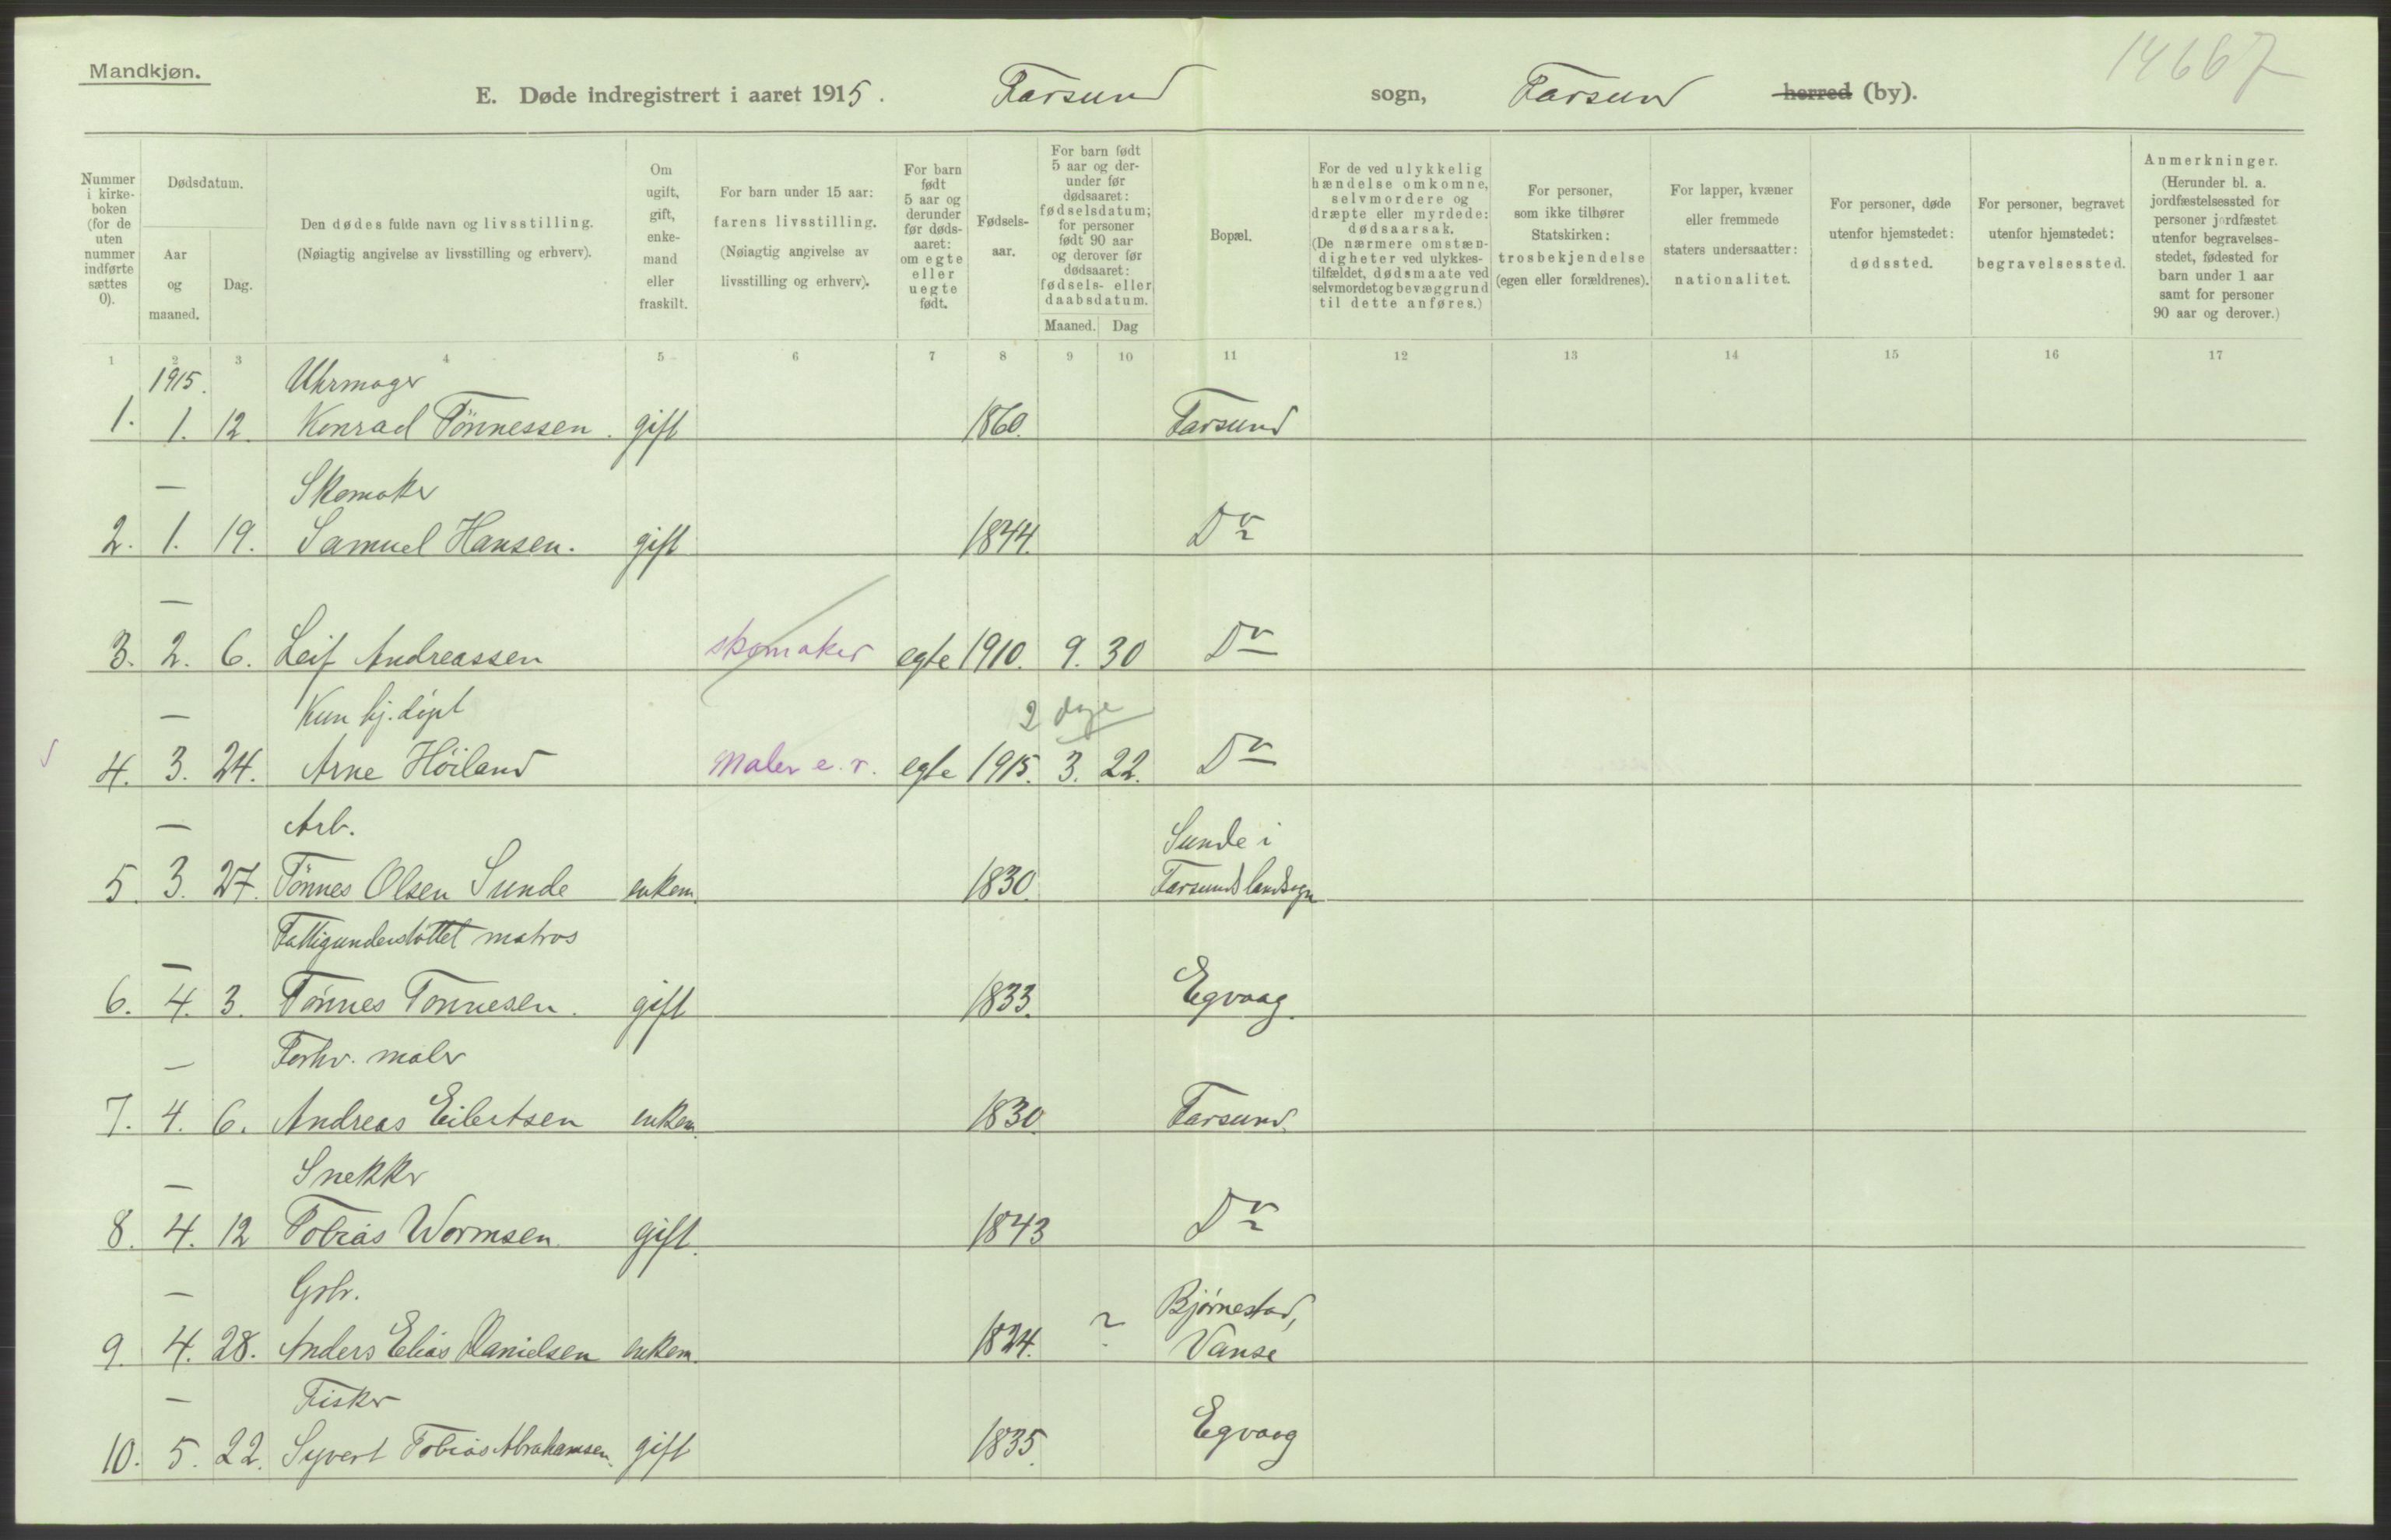 Mandkjøn.
14667
E. Døde indregistrert i aaret 1915. Farsund sogn, Farsund herred (by).
Nummer i kirke-boken (for de uten nummer indførte sættes 0).
Dødsdatum.
Aar og maaned.
Dag.
Den dødes fulde navn og livsstilling.
(Nøiagtig angivelse av livsstilling og erhverv).
Om ugift, gift, enke-mand eller fraskilt.
For barn under 15 aar: farens livsstilling.
(Nøiagtig angivelse av livsstilling og erhverv).
For barn født 5 aar og derunder før døds-aaret: om egte eller uegte født.
Fødsels-aar.
For barn født 5 aar og der-under før dødsaaret: fødselsdatum; for personer født 90 aar og derover før dødsaaret: fødsels- eller daabsdatum.
Maaned. Dag
Bopæl.
For de ved ulykkelig hændelse omkomne, selvmordere og dræpte eller myrdede: dødsaarsak.
(De nærmere omstæn-digheter ved ulykkes-tilfældet, dødsmaate ved selvmordet og bevæggrund til dette anføres.)
For personer, som ikke tilhører Statskirken: trosbekjendelse (egen eller forældrenes).
For lapper, kvæner eller fremmede staters undersaatter: nationalitet.
For personer, døde utenfor hjemstedet: dødssted.
For personer, begravet utenfor hjemstedet: begravelsessted.
Anmerkninger.
(Herunder bl. a. jordfæstelsessted for personer jordfæstet utenfor begravelses-stedet, fødested for barn under 1 aar samt for personer 90 aar og derover.)
1 2 3 4 5 6 7 8 9 10 11 12 13 14 15 16 17
1915. Uhrmager
1. 1. 12. Konrad Tönnessen. gift 1860. Farsund
— Skomaker
2. 1. 19. Samuel Hansen. gift 1844. Do
—
3. 2. 6. Leif Andreassen skomaker egte 1910. 9. 30 Do
— Kun hj. døpt 2 dage
4. 3. 24. Arne Höiland Maler e. r. egte 1915. 3. 22. Do
— Arb. Sunde i
5. 3. 27. Tönnes Olsen Sunde enkem. 1830. Farsunds landsogn
Fattigunderstøttet matros
— 
6. 4. 3. Tönnes Tönnesen. gift 1833. Egvaag.
— Forhv. maler
7. 4. 6. Andreas Eilertsen enkem. 1830. Farsund.
— Snekker
8. 4. 12 Tobias Wormsen. gift. 1843 Do
— Gbr. Bjørnestad,
9. 4. 28. Anders Elias Danielsen enkem. 1824. ? Vanse
— Fisker
10. 5. 22. Syvert Tobias Abrahamsen. gift 1835. Egvaag